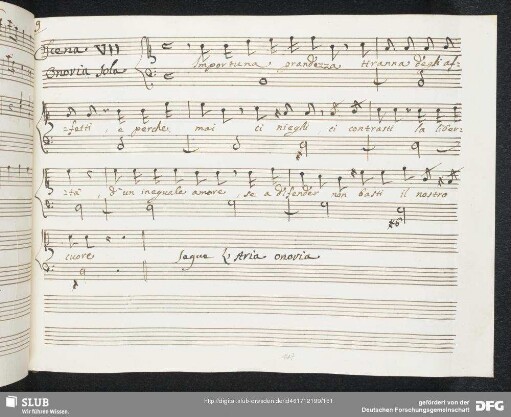 Scena VII
Onoria Sola
Importuna grandezza tiranna degli af-
fetti, e perche mai ci nieghi, ci contrasti la liber-
tà, d'un ineguale amore, se a difender non basti il nostro
cuore
Segue L'Aria Onoria
SLUB
Wir führen Wissen.
gefördert von der
Deutschen Forschungsgemeinschaft
DFG